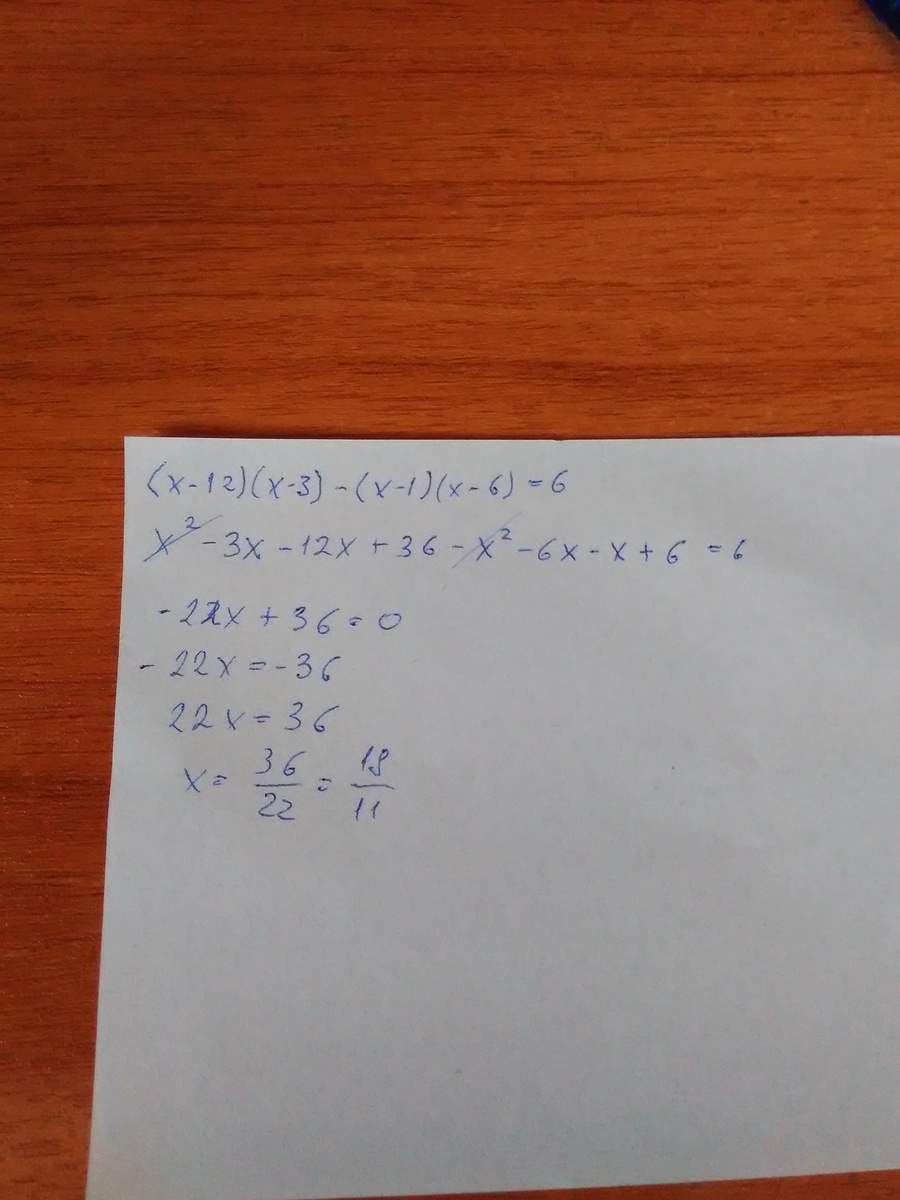 (x-12)(x-3) - (x-1)(x-6) = 6
x² - 3x - 12x + 36 - x² - 6x - x + 6 = 6
- 22x + 36 = 0
- 22x = - 36
22x = 36
x = 36/22 = 18/11